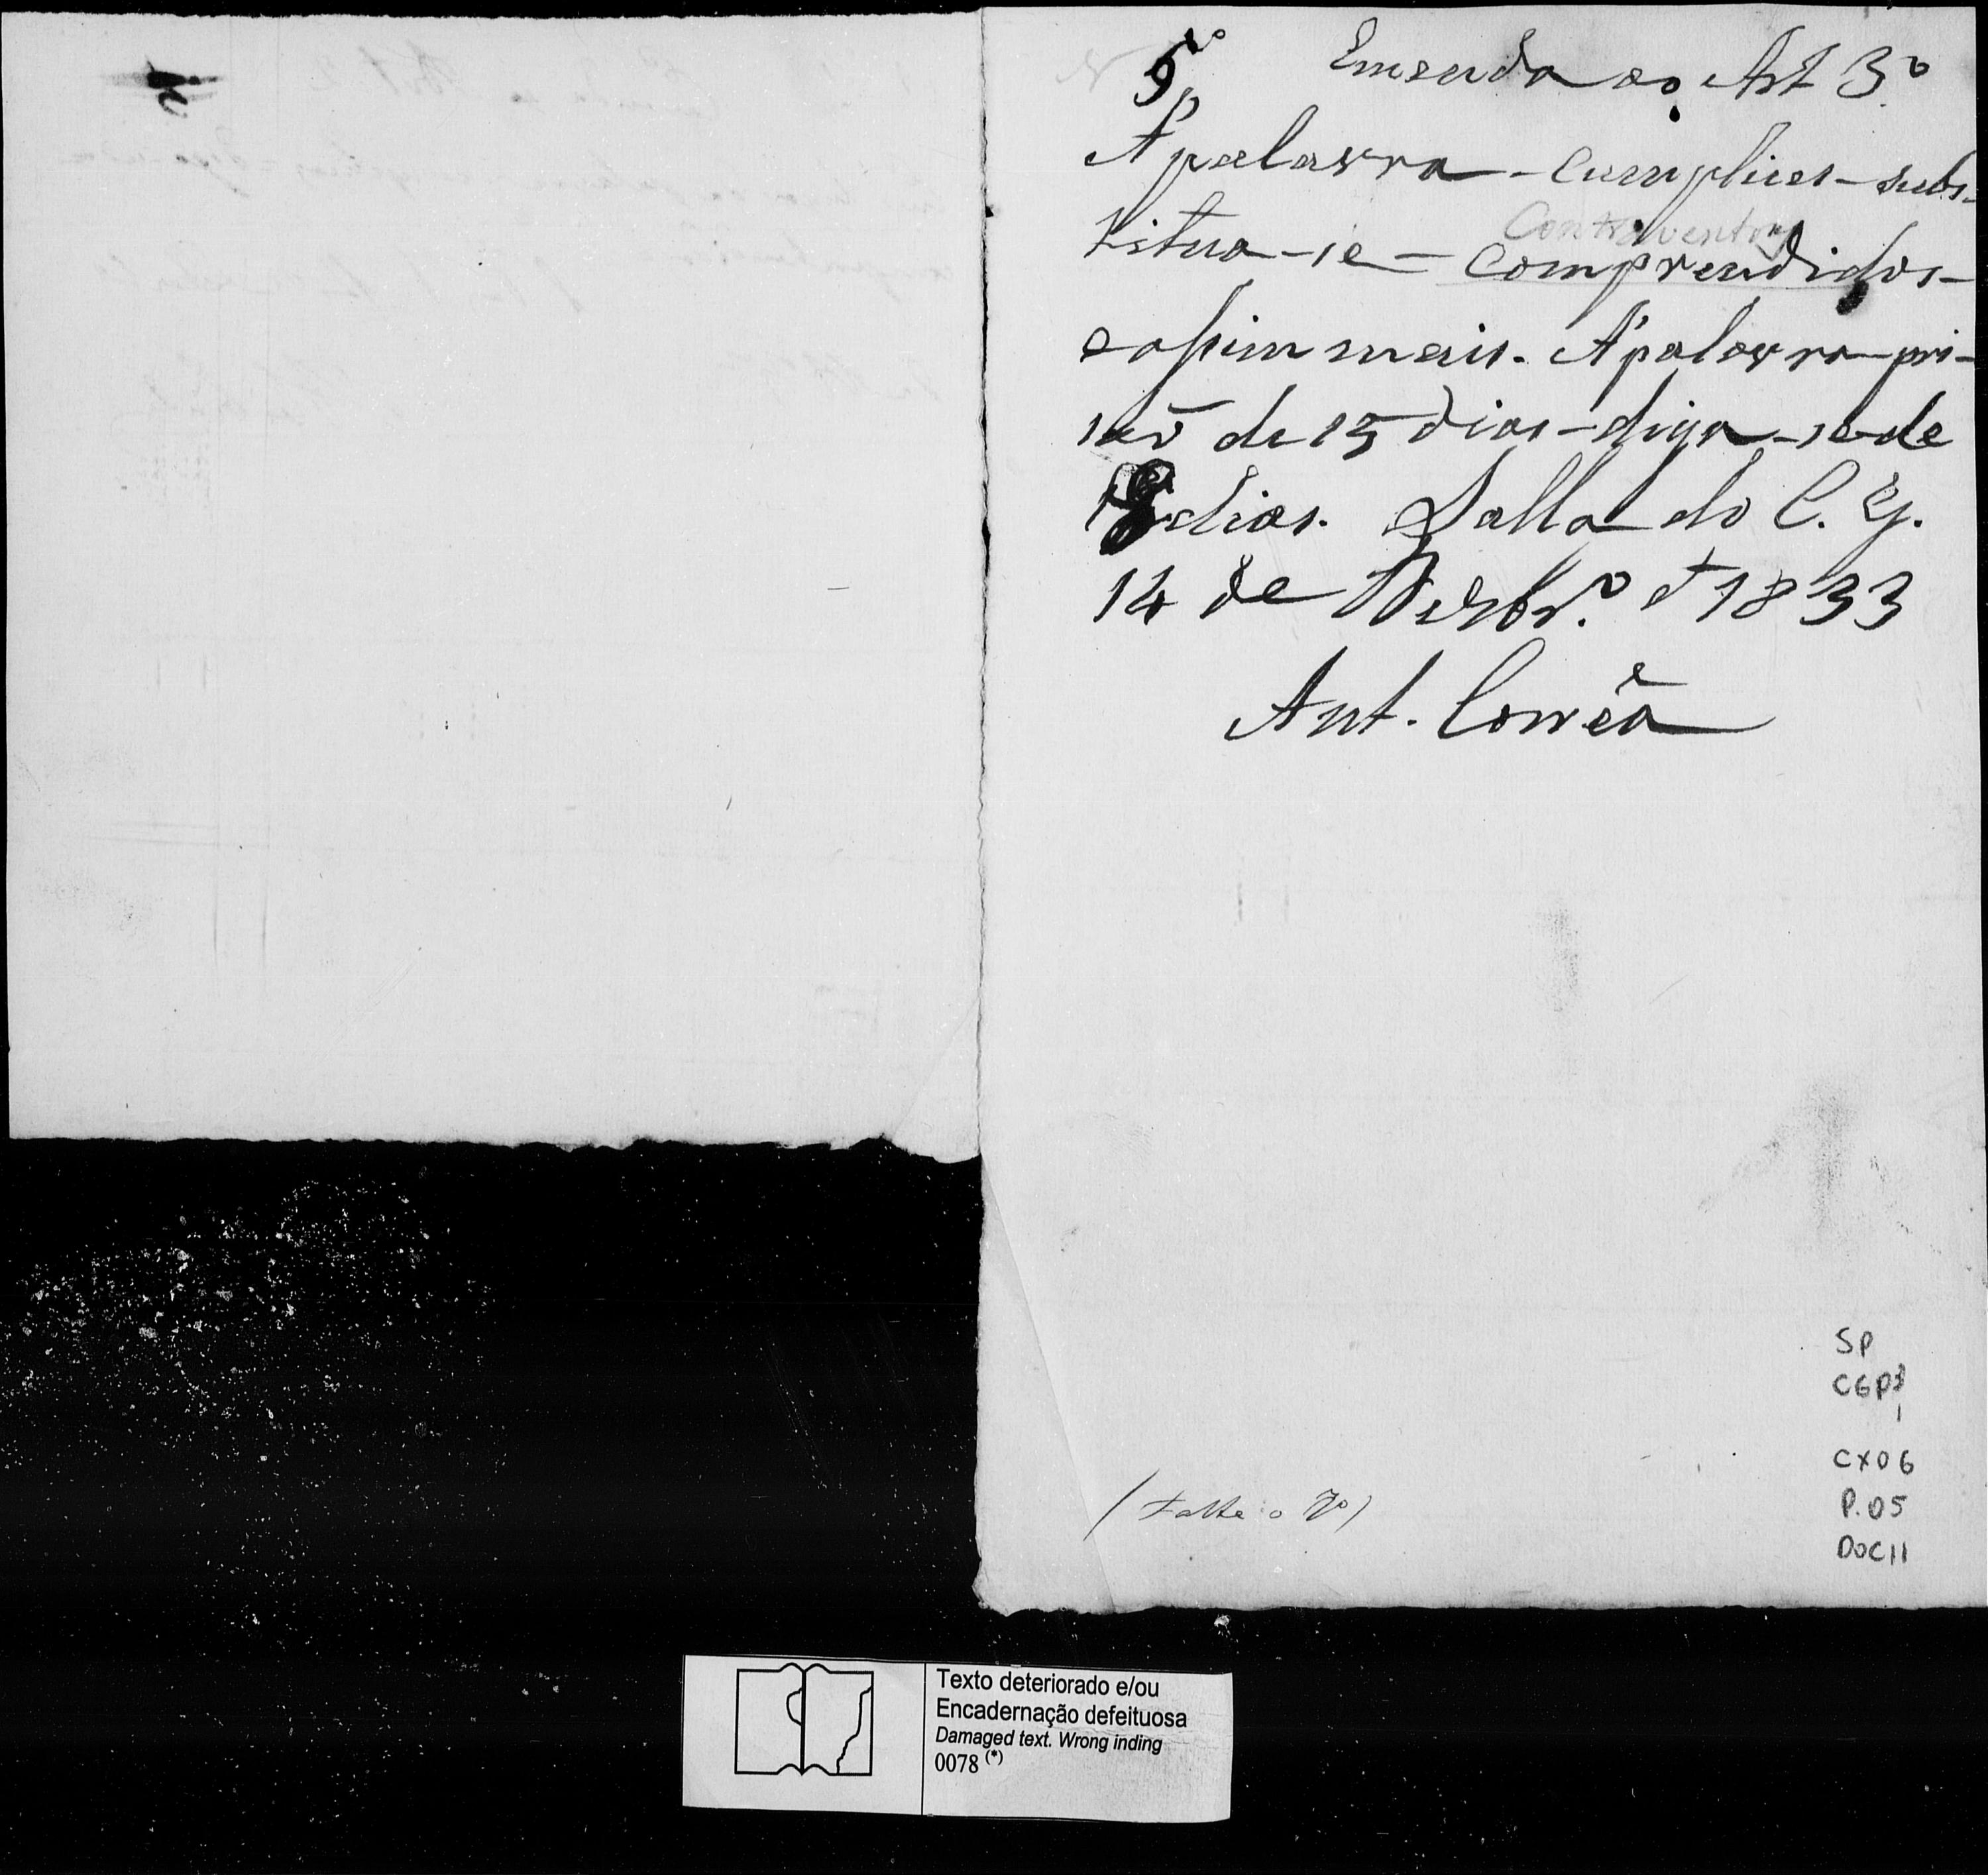 5º Emenda ao Art 3º
A palavra - Cumplices - subs-
Contraventor
titua-se - Comprendidos -
e assim mais. A palavra - pri-
saõ de 15 dias - diga-se de
8 dias. Salla do C. G.
14 de Dezbrº d 1833
Ant. Corrêa
(Falta o 7º)
SP
CGP1
1
CX06
P.05
DOC11
Texto deteriorado e/ou
Encadernação defeituosa
Damaged text. Wrong inding
0078 (*)